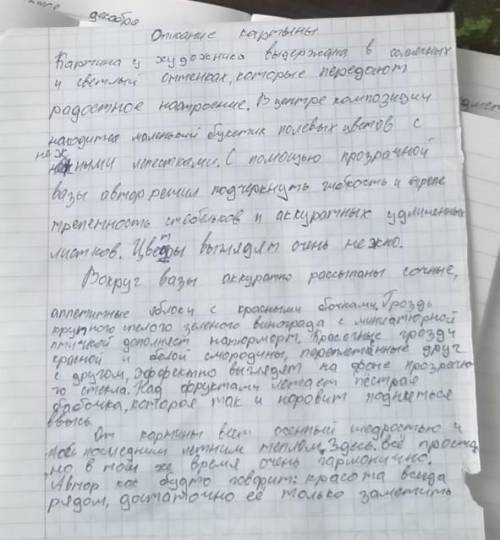 декабря
Описание картины.
Картина у художника выдержана в солнечных
и светлый оттенках, которые передают
радостное настроение. В центре композиции
находится маленький букетик полевых цветов с
неж
ными лепестками. С помощью прозрачной
вазы автор решил подчеркнуть гибкость и
трепетность стебельков и аккуратных удлиненных
листков. Цветы выглядят очень нежно.
Вокруг вазы аккуратно рассыпаны сочные,
аппетитные яблоки с красными бочками. Гроздь
крупного спелого зеленого винограда с миниатюрной
птичкой дополняет натюрморт. Красочные грозди
красной и белой смородины, переплетённые друг
с другом, эффектно выглядят на фоне прозрачно
го стекла. Над фруктами летает пёстрая
бабочка, которая так и норовит подняться
ввысь.
От картины веет осенней щедростью и
последним летним теплом. Здесь всё просто,
но в той же время очень гармонично.
Автор как будто говорит: красота всегда
рядом, достаточно её только заметить